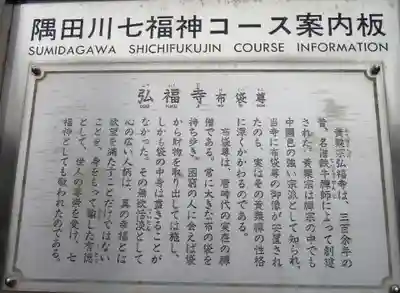 隅田川七福神コース案内板
SUMIDAGAWA SHICHIFUKUJIN COURSE INFORMATION
弘福寺 布袋尊
黄檗宗弘福寺は、三百余年の
昔、名僧鉄牛禅師によって創建
された。黄檗宗は禅宗の中でも
中國色の強い宗派として知られ、
当寺に布袋尊の御像が安置され
たのも、実はその黄檗禅の性格
に深くかかわるのである。
布袋尊は、唐時代の実在の禅
僧である。常に大きな布の袋を
持ち歩き、困窮の人に会えば袋
から財物を取り出しては施し、
しかも袋の中身は盡きることが
なかった。その無欲恬淡として
心の広い人柄は、真の幸福とは
欲望を満たすことだけではない
ことを、身をもって諭した有徳
として、世人の崇済を受け、七
福神としても敬われたのである。